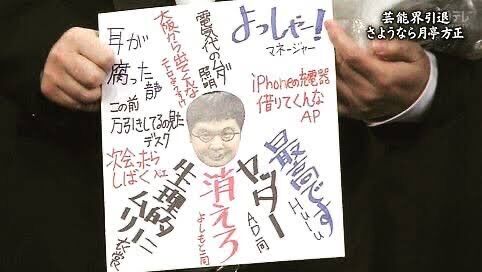 芸能界引退
さようなら月亭方正
よっしゃー!
マネージャー
電気代のムダ
照明
大阪から出てくんな
耳が
腐った
この前
万引きしてるの見た
デスク
次会ったら
しばく
生理的に
ムリ
衣裳
消えろ
よしもと一同
ヤッター
AD一同
最高です
Hulu
iPhoneの充電器
借りてくんな
AP